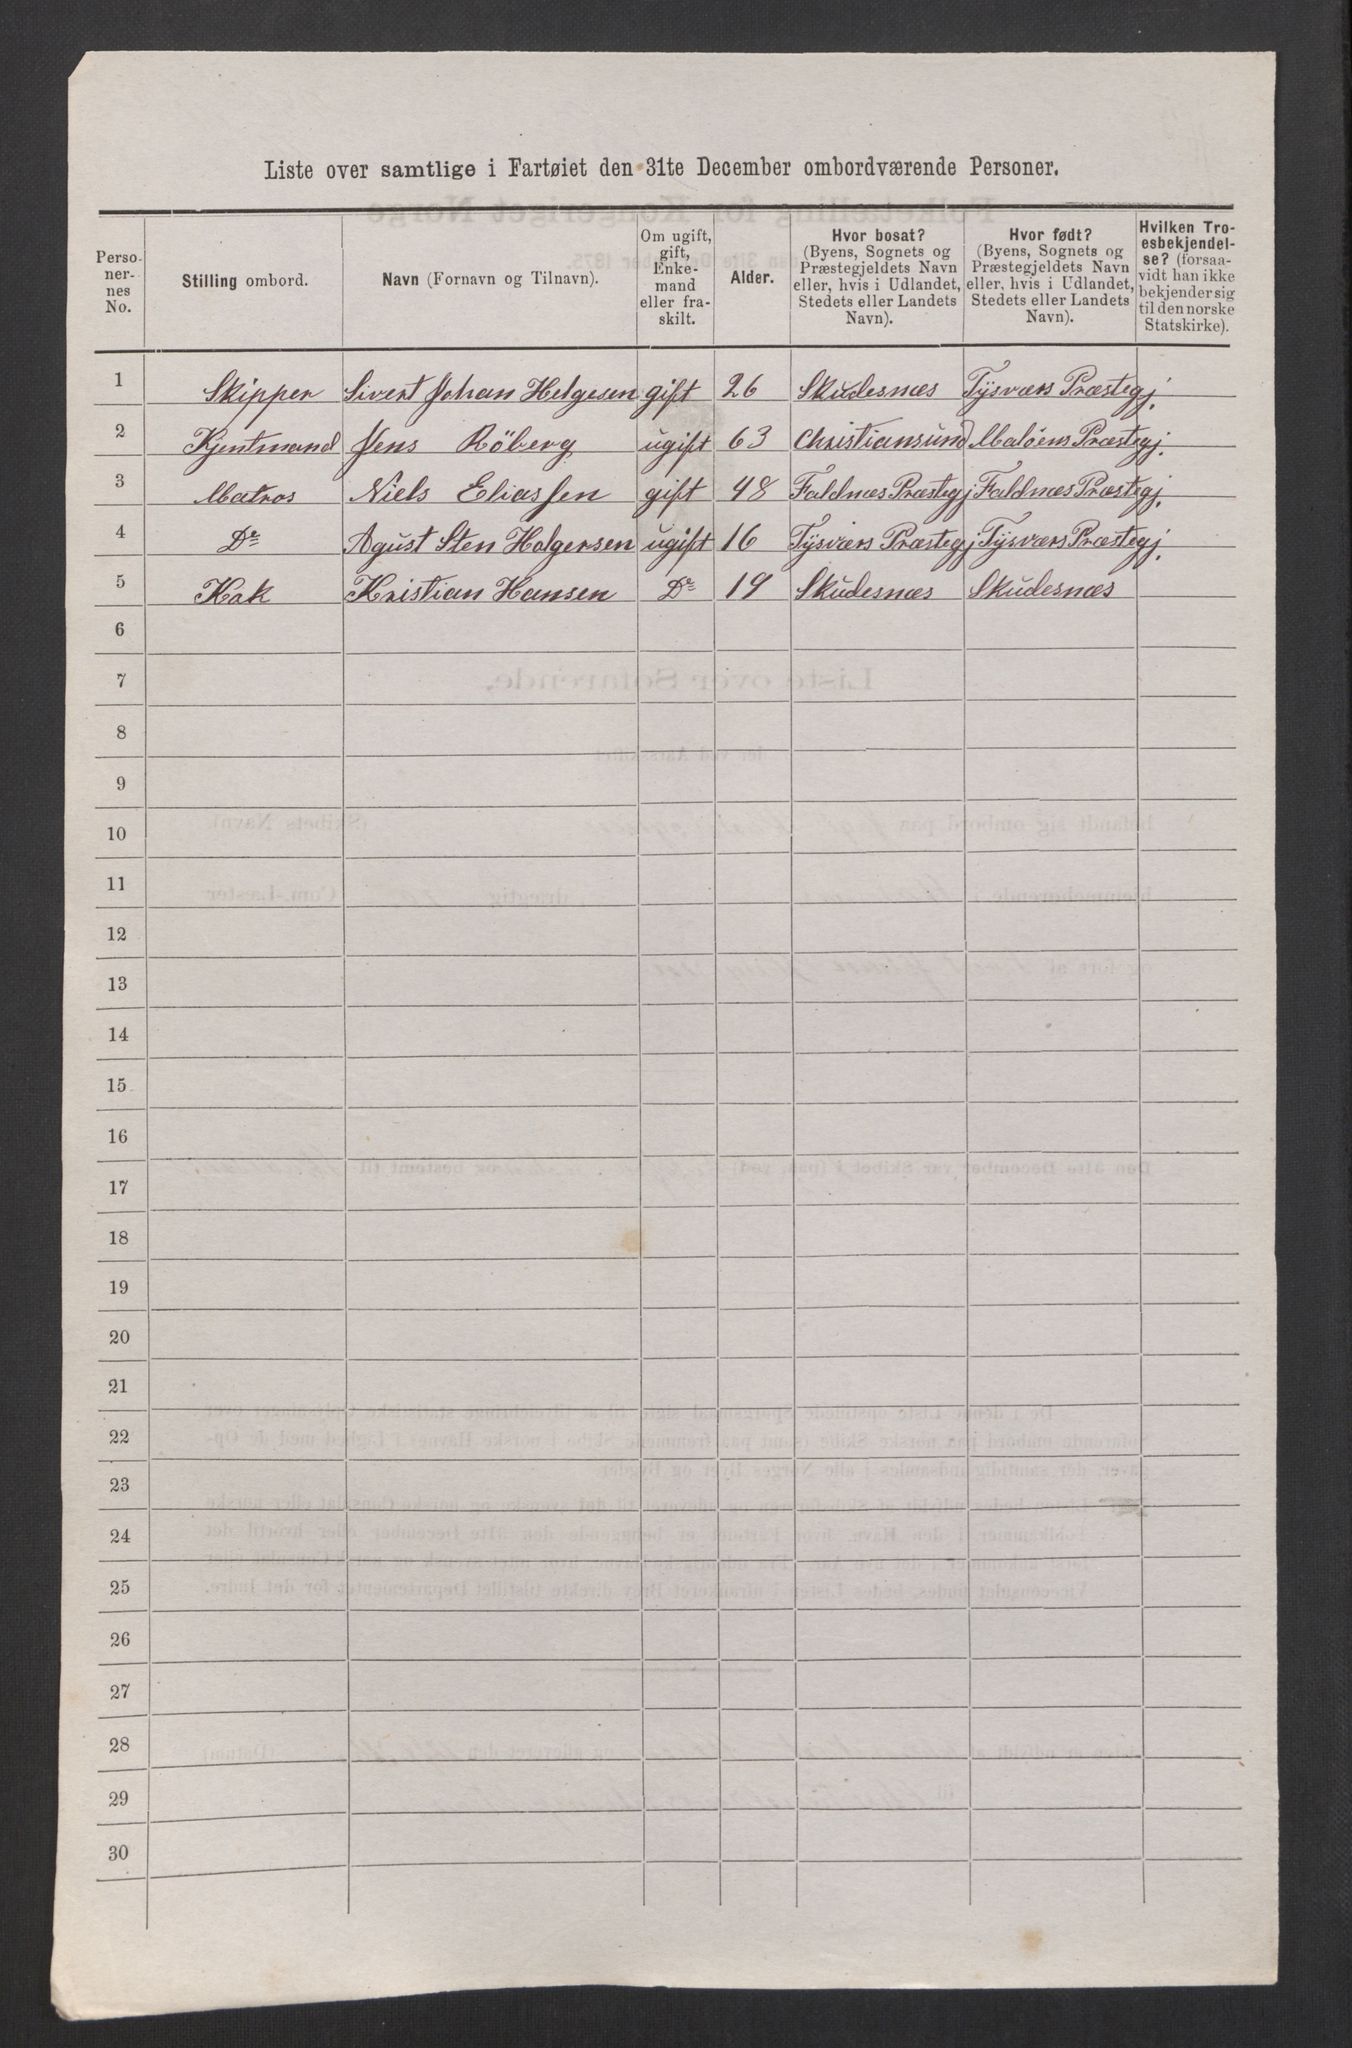 Liste over samtlige i Fartøiet den 31te December ombordværende Personer.
Perso-
ner-
nes
No.
Stilling ombord.
Navn (Fornavn og Tilnavn).
Om ugift,
gift,
Enke-
mand
eller fra-
skilt.
Alder.
Hvor bosat?
(Byens, Sognets og
Præstegjeldets Navn
eller, hvis i Udlandet,
Stedets eller Landets
Navn).
Hvor født?
(Byens, Sognets og
Præstegjeldets Navn
eller, hvis i Udlandet,
Stedets eller Landets
Navn).
Hvilken Tro-
esbekjendel-
se? (forsaa-
vidt han ikke
bekjender sig
til den norske
Statskirke).
1 Skipper Sivert Johan Helgesen gift 26 Skudesnæs Tysværs Præstegj.
2 Kjentmand Jens Röberg ugift 63 Christiansund Maløens Præstegj.
3 Matros Niels Eliassen gift 48 Faldnæs Præstegj Faldnæs Præstegj.
4 Do Agust Sten Holgersen ugift 16 Tysværs Præstegj Tysværs Præstegj.
5 Kok Kristian Hansen Do 19 Skudesnæs Skudesnæs
6
7
8
9
10
11
12
13
14
15
16
17
18
19
20
21
22
23
24
25
26
27
28
29
30